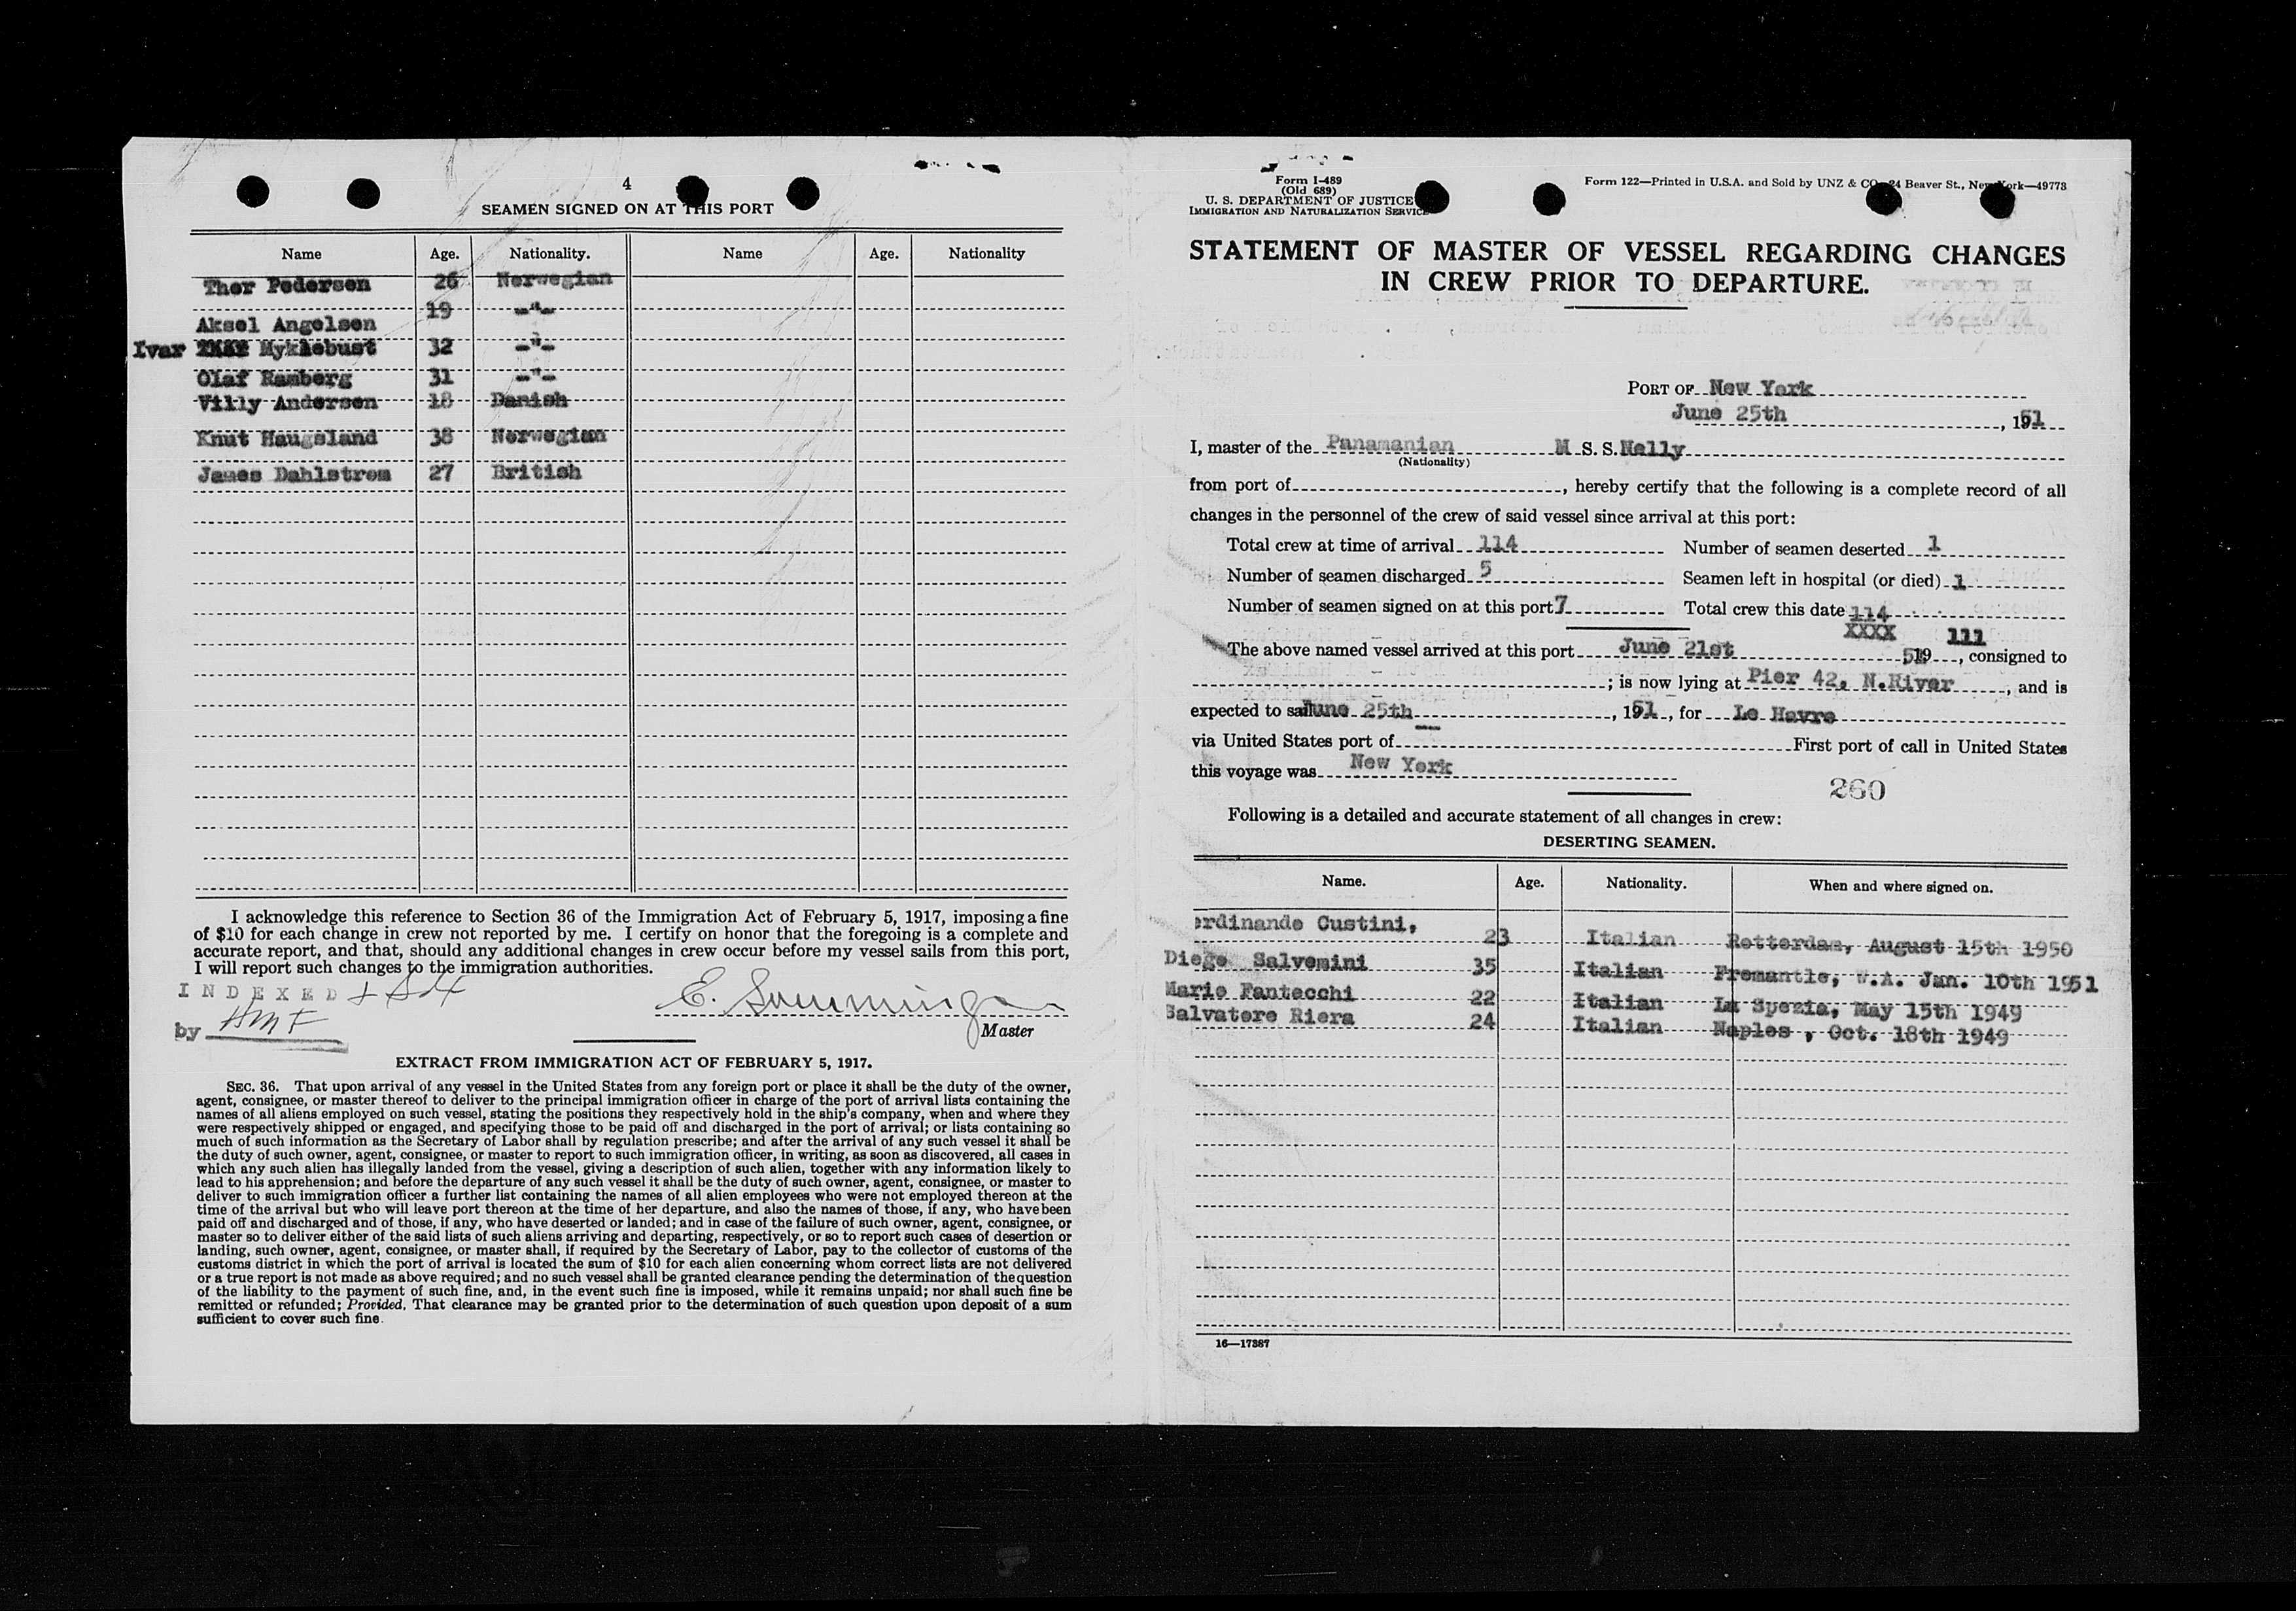 4
SEAMEN SIGNED ON AT THIS PORT
Name Age. Nationality. Name Age. Nationality
Thor Pedersen 26 Norwegian
Aksel Angelsen 19 -"-
Ivar Myklebust 32 -"-
Olaf Ramberg 31 -"-
Villy Andersen 18 Danish
Knut Haugsland 38 Norwegian
James Dahlstrom 27 British
I acknowledge this reference to Section 36 of the Immigration Act of February 5, 1917, imposing a fine
of $10 for each change in crew not reported by me. I certify on honor that the foregoing is a complete and
accurate report, and that, should any additional changes in crew occur before my vessel sails from this port,
I will report such changes to the immigration authorities.
INDEXED
by HMF
Master
EXTRACT FROM IMMIGRATION ACT OF FEBRUARY 5, 1917.
SEC. 36. That upon arrival of any vessel in the United States from any foreign port or place it shall be the duty of the owner,
agent, consignee, or master thereof to deliver to the principal immigration officer in charge of the port of arrival lists containing the
names of all aliens employed on such vessel, stating the positions they respectively hold in the ship's company, when and where they
were respectively shipped or engaged, and specifying those to be paid off and discharged in the port of arrival; or lists containing so
much of such information as the Secretary of Labor shall by regulation prescribe; and after the arrival of any such vessel it shall be
the duty of such owner, agent, consignee, or master to report to such immigration officer, in writing, as soon as discovered, all cases in
which any such alien has illegally landed from the vessel, giving a description of such alien, together with any information likely to
lead to his apprehension; and before the departure of any such vessel it shall be the duty of such owner, agent, consignee, or master to
deliver to such immigration officer a further list containing the names of all alien employees who were not employed thereon at the
time of the arrival but who will leave port thereon at the time of her departure, and also the names of those, if any, who have been
paid off and discharged and of those, if any, who have deserted or landed; and in case of the failure of such owner, agent, consignee, or
master so to deliver either of the said lists of such aliens arriving and departing, respectively, or so to report such cases of desertion or
landing, such owner, agent, consignee, or master shall, if required by the Secretary of Labor, pay to the collector of customs of the
customs district in which the port of arrival is located the sum of $10 for each alien concerning whom correct lists are not delivered
or a true report is not made as above required; and no such vessel shall be granted clearance pending the determination of the question
of the liability to the payment of such fine, and, in the event such fine is imposed, while it remains unpaid; nor shall such fine be
remitted or refunded; Provided, That clearance may be granted prior to the determination of such question upon deposit of a sum
sufficient to cover such fine.
Form I-489
(Old 689)
U. S. DEPARTMENT OF JUSTICE
IMMIGRATION AND NATURALIZATION SERVICE
Form 122—Printed in U.S.A. and Sold by UNZ & CO., 24 Beaver St., New York—49773
STATEMENT OF MASTER OF VESSEL REGARDING CHANGES
IN CREW PRIOR TO DEPARTURE.
PORT OF New York
June 25th, 1951
I, master of the Panamanian M S. S. Nelly
(Nationality)
from port of , hereby certify that the following is a complete record of all
changes in the personnel of the crew of said vessel since arrival at this port:
Total crew at time of arrival 114 Number of seamen deserted 1
Number of seamen discharged 5 Seamen left in hospital (or died) 1
Number of seamen signed on at this port 7 Total crew this date 114
XXXX 111
The above named vessel arrived at this port June 21st 51 19 , consigned to
; is now lying at Pier 42, N.River , and is
expected to sail June 25th , 1951 , for Le Havre
via United States port of First port of call in United States
this voyage was New York
260
Following is a detailed and accurate statement of all changes in crew:
DESERTING SEAMEN.
Name. Age. Nationality. When and where signed on.
erdinando Custini, 23 Italian Rotterdam, August 15th 1950
Diego Salvemini 35 Italian Fremantle, W.A. Jan. 10th 1951
Mario Fantacchi 22 Italian La Spezia, May 15th 1949
Salvatore Riera 24 Italian Naples , Oct. 18th 1949
16—17387